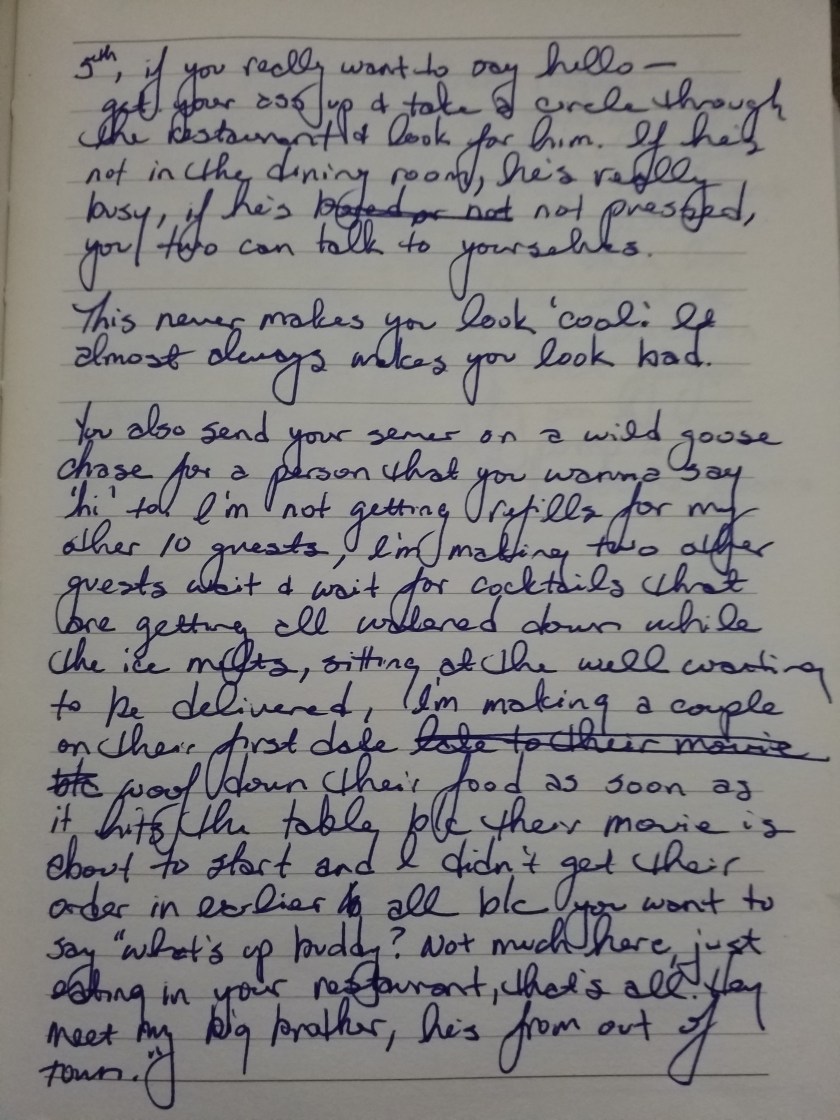 5th, if you really want to say hello —
get your ass up & take a circle through
the restaurant & look for him. If he's
not in the dining room, he's really
busy, if he's bored or not not pressed,
you two can talk to yourselves.
This never makes you look 'cool'. It
almost always makes you look bad.
You also send your server on a wild goose
chase for a person that you wanna say
'hi' to. I'm not getting refills for my
other 10 guests, I'm making two other
guests wait & wait for cocktails that
are getting all watered down while
the ice melts, sitting at the well waiting
to be delivered, I'm making a couple
on their first date late to their movie
b/c woof down their food as soon as
it hits the table b/c their movie is
about to start and I didn't get their
order in earlier all b/c you want to
say "what's up buddy? Not much here, just
eating in your restaurant, that's all. Hey
meet my big brother, he's from out of
town."